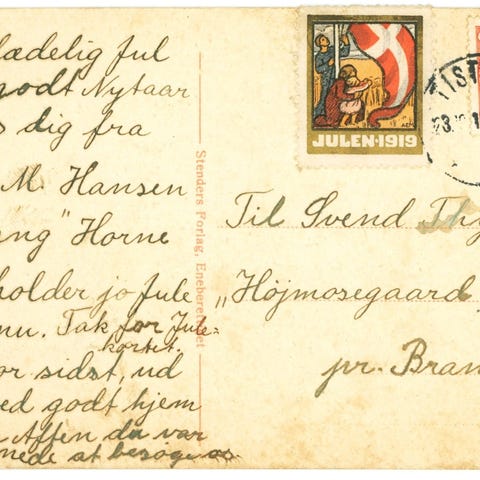 lædelig Jul
godt Nytaar
dig fra
M. Hansen
ng" Horne
holder jo Jule
nu. Tak for Jule-
kortet.
or sidst, ud
ed godt hjem
Aften du var
nede at besøge os.
Stenders Forlag, Eneberettiget
JULEN·1919
Til Svend Thy
„Højmosegaard
pr. Bran